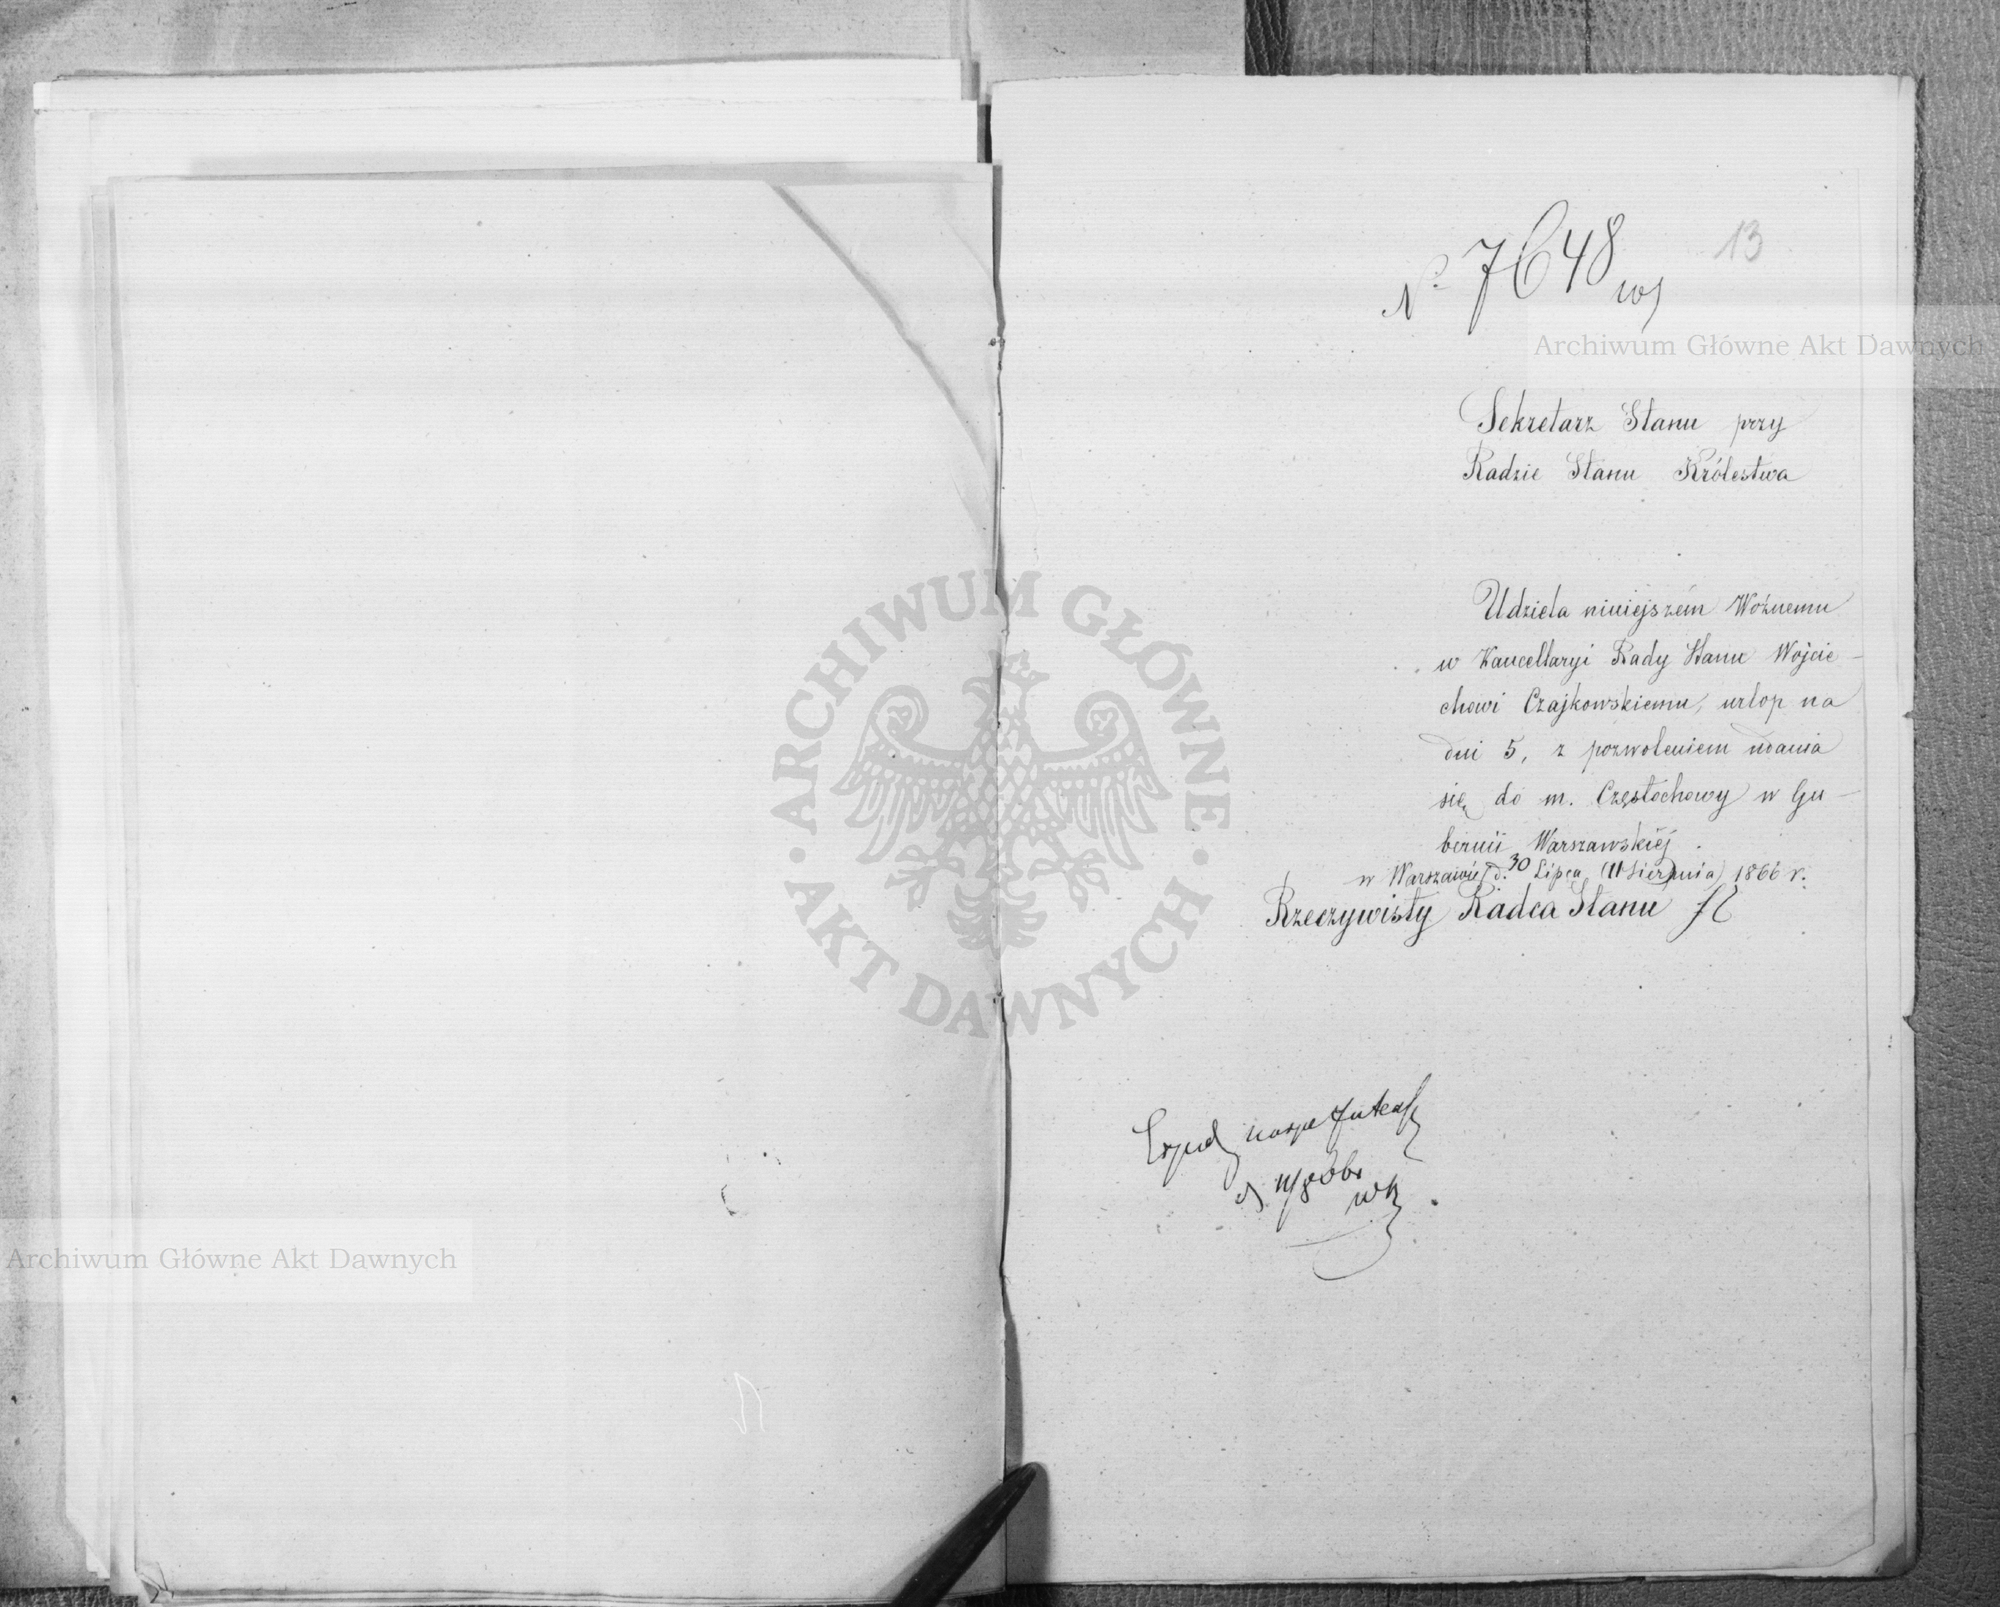 13
№ 7648
Archiwum Główne Akt Dawnych
Sekretarz Stanu przy
Radzie Stanu Królestwa
Udziela niniejszém Woźnemu
w Kancellaryi Rady Stanu Wojcie-
chowi Czajkowskiemu, urlop na
dni 5, z pozwoleniem udania
się do m. Częstochowy w Gu-
bernii Warszawskiéj.
w Warszawie d. 30 Lipca (11 Sierpnia) 1866 r.
Rzeczywisty Radca Stanu
ARCHIWUM GŁÓWNE
AKT DAWNYCH
Archiwum Główne Akt Dawnych